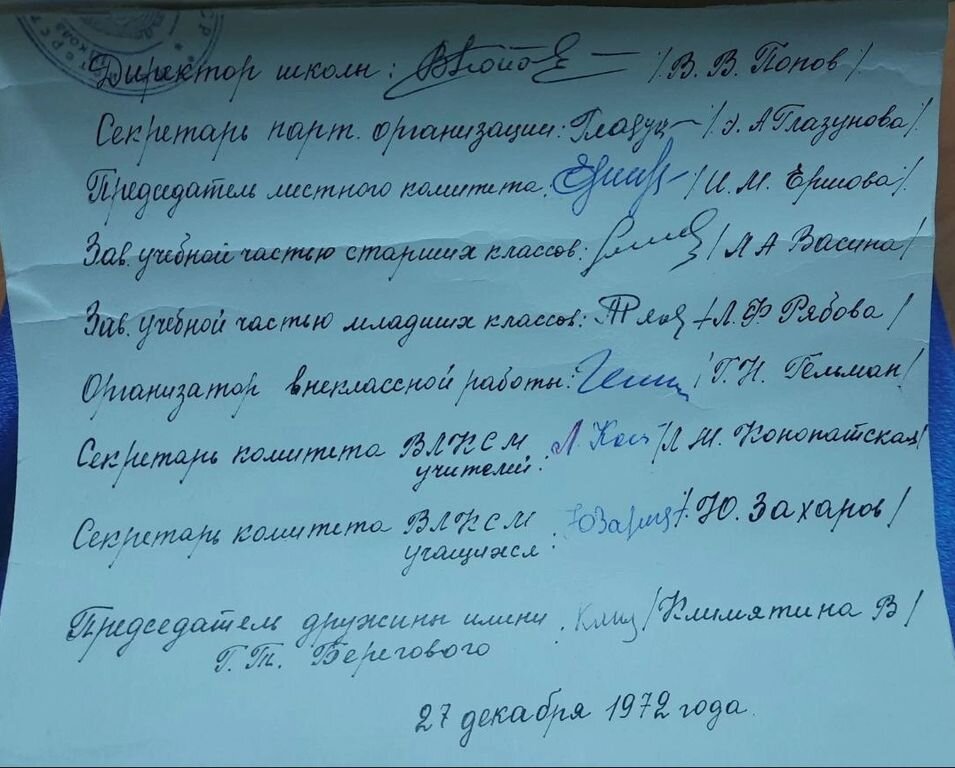 Директор школы: /В. В. Попов/
Секретарь парт. организации: /Э. А Глазунова/
Председатель местного комитета: /И. М. Ершова/
Зав. учебной частью старших классов: /Л А Васина/
Зав. учебной частью младших классов: /Л. Ф Рябова/
Организатор внеклассной работы: /Г. Н. Гельман/
Секретарь комитета ВЛКСМ учителей: /Л М. Конопатская/
Секретарь комитета ВЛКСМ учащихся: /Ю. Захаров/
Председатель дружины имени : /Климятина В/
Г. Т. Берегового
27 декабря 1972 года.